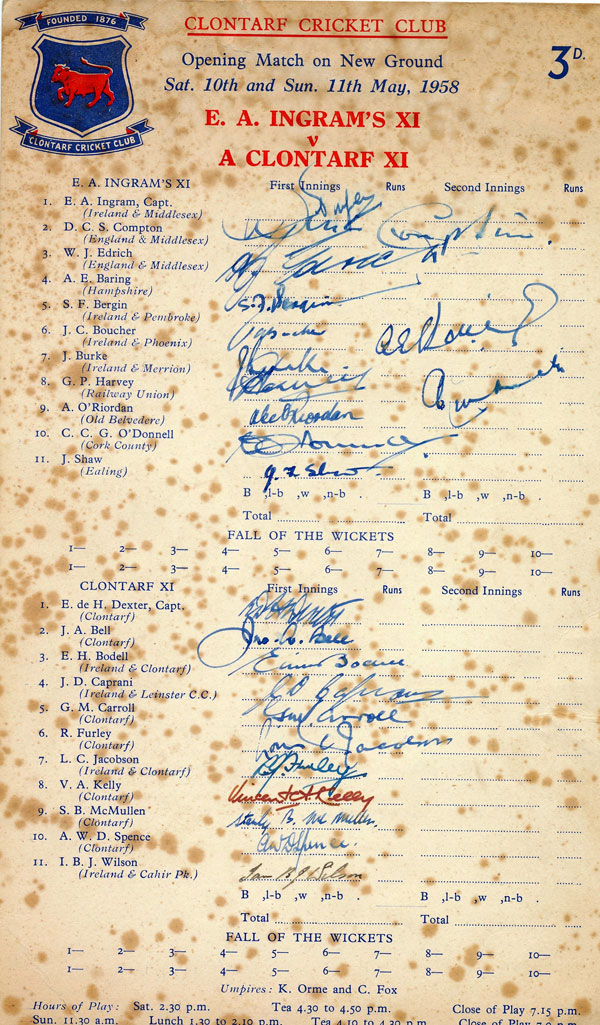 FOUNDED 1876
CLONTARF CRICKET CLUB
CLONTARF CRICKET CLUB
Opening Match on New Ground
3D.
Sat. 10th and Sun. 11th May, 1958
E. A. INGRAM'S XI
v
A CLONTARF XI
E. A. INGRAM'S XI First Innings Runs Second Innings Runs
1. E. A. Ingram, Capt.
(Ireland & Middlesex)
2. D. C. S. Compton Compton
(England & Middlesex)
3. W. J. Edrich
(England & Middlesex)
4. A. E. Baring
(Hampshire)
5. S. F. Bergin S. F. Bergin
(Ireland & Pembroke)
6. J. C. Boucher
(Ireland & Phoenix)
7. J. Burke
(Ireland & Merrion)
8. G. P. Harvey
(Railway Union)
9. A. O'Riordan Alec O'Riordan
(Old Belvedere)
10. C. C. G. O'Donnell
(Cork County)
11. J. Shaw
(Ealing)
B ,l-b ,w ,n-b . B ,l-b ,w ,n-b .
Total Total
FALL OF THE WICKETS
1— 2— 3— 4— 5— 6— 7— 8— 9— 10—
1— 2— 3— 4— 5— 6— 7— 8— 9— 10—
CLONTARF XI First Innings Runs Second Innings Runs
1. E. de H. Dexter, Capt.
(Clontarf)
2. J. A. Bell Jno. A. Bell
(Clontarf)
3. E. H. Bodell
(Ireland & Clontarf)
4. J. D. Caprani
(Ireland & Leinster C.C.)
5. G. M. Carroll Carroll
(Clontarf)
6. R. Furley Jacobson
(Clontarf)
7. L. C. Jacobson R. Furley
(Ireland & Clontarf)
8. V. A. Kelly Vincent A Kelly
(Clontarf)
9. S. B. McMullen Stanley B. McMullen
(Clontarf)
10. A. W. D. Spence A W D Spence.
(Clontarf)
11. I. B. J. Wilson Ian B J Wilson
(Ireland & Cahir Pk.)
B ,l-b ,w ,n-b . B ,l-b ,w ,n-b .
Total Total
FALL OF THE WICKETS
1— 2— 3— 4— 5— 6— 7— 8— 9— 10—
1— 2— 3— 4— 5— 6— 7— 8— 9— 10—
Umpires: K. Orme and C. Fox
Hours of Play: Sat. 2.30 p.m. Tea 4.30 to 4.50 p.m. Close of Play 7.15 p.m.
Sun. 11.30 a.m. Lunch 1.30 to 2.10 p.m. Tea 4.10 to 4.30 p.m. Close of Play